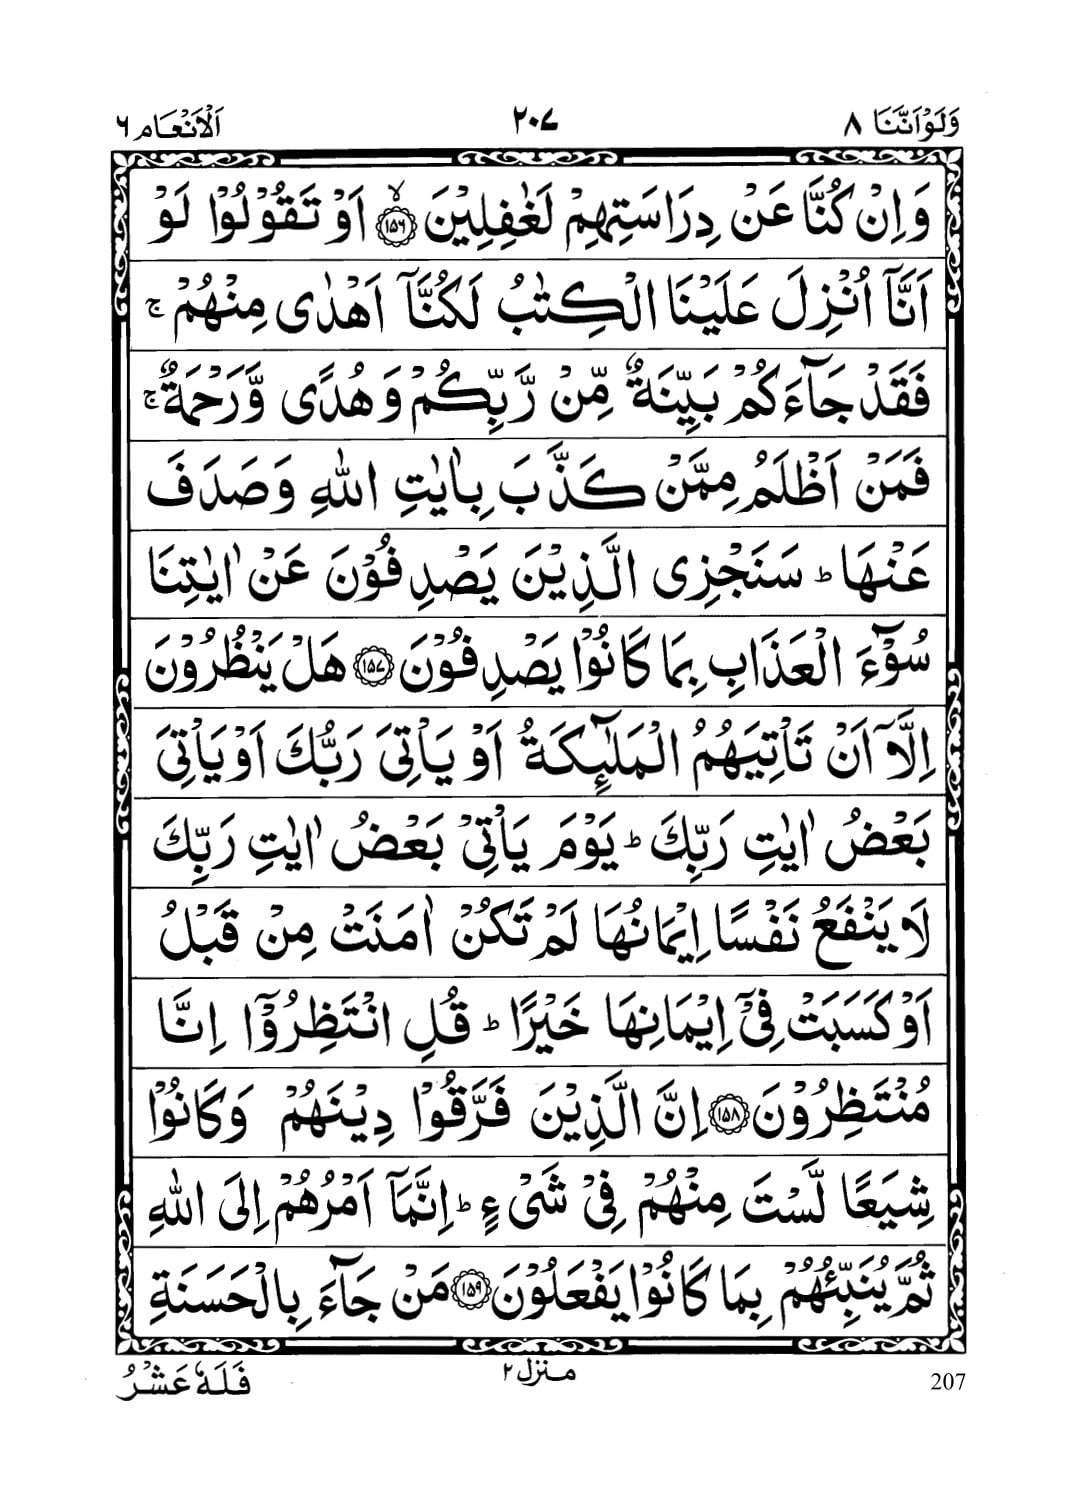 وَلَوْاَنَّنَا ٨ ٢٠٧ اَلْاَنْعَام ٦
وَاِنْ كُنَّا عَنْ دِرَاسَتِهِمْ لَغٰفِلِيْنَ ﴿۱۵۶﴾ ۙ اَوْ تَقُوْلُوْا لَوْ
اَنَّاۤ اُنْزِلَ عَلَيْنَا الْكِتٰبُ لَكُنَّاۤ اَهْدٰى مِنْهُمْ ۚ
فَقَدْ جَآءَكُمْ بَيِّنَةٌ مِّنْ رَّبِّكُمْ وَهُدًى وَّرَحْمَةٌ ۚ
فَمَنْ اَظْلَمُ مِمَّنْ كَذَّبَ بِاٰيٰتِ اللّٰهِ وَصَدَفَ
عَنْهَا ؕ سَنَجْزِى الَّذِيْنَ يَصْدِفُوْنَ عَنْ اٰيٰتِنَا
سُوْٓءَ الْعَذَابِ بِمَا كَانُوْا يَصْدِفُوْنَ ﴿۱۵۷﴾ هَلْ يَنْظُرُوْنَ
اِلَّاۤ اَنْ تَاْتِيَهُمُ الْمَلٰٓئِكَةُ اَوْ يَاْتِىَ رَبُّكَ اَوْ يَاْتِىَ
بَعْضُ اٰيٰتِ رَبِّكَ ؕ يَوْمَ يَاْتِىْ بَعْضُ اٰيٰتِ رَبِّكَ
لَا يَنْفَعُ نَفْسًا اِيْمَانُهَا لَمْ تَكُنْ اٰمَنَتْ مِنْ قَبْلُ
اَوْ كَسَبَتْ فِىْۤ اِيْمَانِهَا خَيْرًا ؕ قُلِ انْتَظِرُوْۤا اِنَّا
مُنْتَظِرُوْنَ ﴿۱۵۸﴾ اِنَّ الَّذِيْنَ فَرَّقُوْا دِيْنَهُمْ وَكَانُوْا
شِيَعًا لَّسْتَ مِنْهُمْ فِىْ شَىْءٍ ؕ اِنَّمَاۤ اَمْرُهُمْ اِلَى اللّٰهِ
ثُمَّ يُنَبِّئُهُمْ بِمَا كَانُوْا يَفْعَلُوْنَ ﴿۱۵۹﴾ مَنْ جَآءَ بِالْحَسَنَةِ
فَلَهٗ عَشْرُ منزل ٢ 207